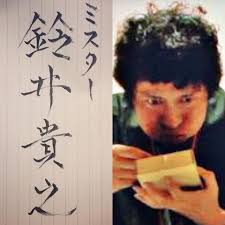 ミスター
鈴井貴之